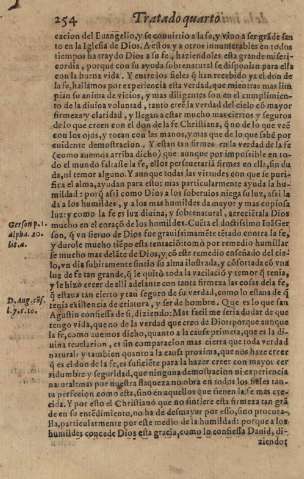 254 Tratado quarto
cacion del Euangelio, y se conuirtio a la fe, y vino a ser grãde san
to en la Iglesia de Dios. A estos y a otros innumerables en todos
tiempos ha traydo Dios a su fe, haziendoles esta grande miseri-
cordia, porque con su ayuda sobrenatural se disponian para ella
con la buena vida. Y entre los fieles q̃ han recebido ya el don de
la fe, hallamos por experiencia esta verdad, que mientras mas lim
pias su anima de vicios, y mas diligentes son en el cumplimien-
to de la diuina voluntad, tanto cree la verdad del cielo cõ mayor
firmeza y claridad, y llegan a estar mucho mas ciertos y seguros
de lo que creen con el don de la fe Christiana, q̃ no de lo que veẽ
con los ojos, y tocan con las manos, y mas que de lo que sabẽ por
euidente demostracion. Y estan tan firmes en la verdad de la fe
(como auemos arriba dicho) que aunque por impossible en to-
do el mundo faltasse la fe, ellos perseuerarã firmes en ella, sin du
da, ni temor alguno. Y aunque todas las virtudes con que se puri-
fica el alma, ayudan para esto: mas particularmente ayuda la hu-
mildad: porq̃ assi como Dios a los soberuios niega su luz, assi la
da a los humildes, y a los mas humildes da mayor y mas copiosa
luz: y como la fe es luz diuina, y sobrenatural, acreciẽtala Dios
Gerson p. 1. mucho en el coraçõ de los humildes. Cuẽta el doctissimo Iuã Ger
alpha. 20. son, q̃ vn sieruo de Dios fue grauissimamẽte tẽtado contra la fe,
lit. a. y durole mucho tiẽpo esta tentaciõ: tomò por remedio humillar
se mucho mas delãte de Dios, y cõ este medio enseñado del cie-
lo, vn dia subitamente sintio su alma ilustrada, y cõfortada cõ vna
luz de fe tan grande, q̃ le quitò toda la vacilaciõ y temor q̃ tenia,
y le hizo creer de alli adelante con tanta firmeza las cosas dela fe,
D. Aug. cõf. q̃ estaua tan cierto y tan seguro de su verdad, como lo estaua de q̃
l. 7. c. 10. tenia existencia de criatura, y ser de hombre. Que es lo que san
Agustin confiessa de si, diziendo: Mas facil me seria dudar de que
tengo vida, que no de la verdad que creo de Dios: porque aunque
la fe, como auemos dicho, quanto a la causa primera, que es la di-
uina reuelacion, es sin comparacion mas cierta que toda verdad
natural: y tambien quanto a la causa proxima, que nos haze creer
q̃ es el don de la fe, es suficiẽte para la hazer creer con mayor cer
tidumbre y seguridad, que ninguna demostracion ni experiencia
natural: mas por nuestra flaqueza no obra en todos los fieles tan-
ta perfecion como esta, sino en aquellos que tienen la fe mas cre-
cida. Y por esso el Christiano que no sintiere esta firmeza tan grã
de en su entẽdimiento, no ha de desmayar por esso, sino procura-
lla, particularmente por este medio de la humildad: porque a los
humildes concede Dios esta gracia, como lo confiessa Dauid, di-
ziendo: